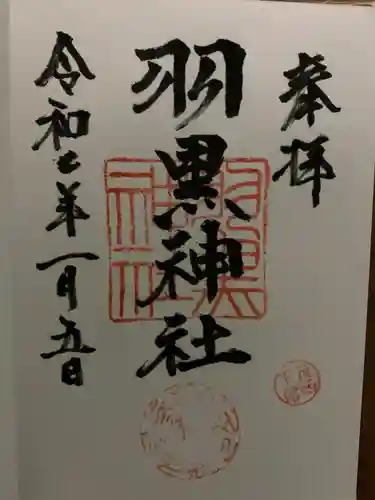 奉拝
羽黒神社
令和七年一月五日